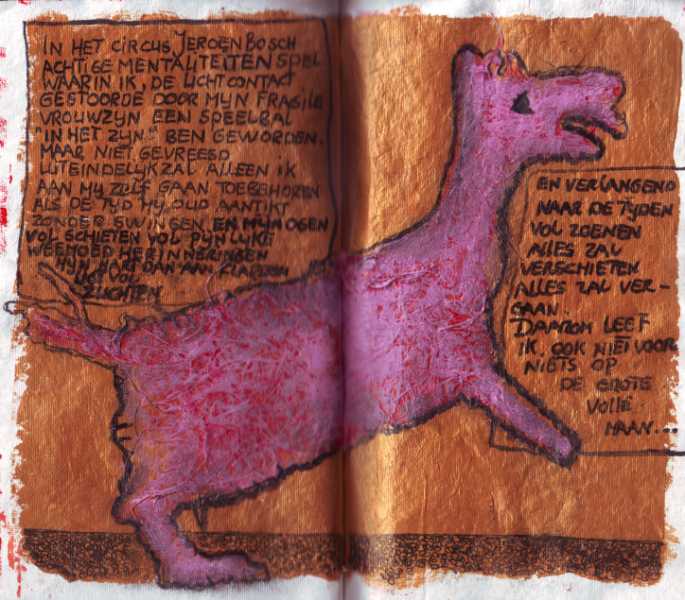 IN HET CIRCUS JEROEN BOSCH
ACHTIGE MENTALITEITEN SPEL
WAARIN IK, DE LICHTCONTACT
GESTOORDE DOOR MIJN FRAGILE
VROUWZIJN EEN SPEELBAL
"IN HET ZIJN" BEN GEWORDEN.
MAAR NIET GEVREESD
UITEINDELIJK ZAL ALLEEN IK
AAN MIJ ZELF GAAN TOEBEHOREN
ALS DE TIJD MIJ OUD AANTIKT
ZONDER SWINGEN. EN MIJN OGEN
VOL SCHIETEN VOL PIJNLIJKE
WEEMOED HERINNERINGEN
MIJN HOND DAN
ZUCHTEN
EN VERLANGEND
NAAR DE TIJDEN
VOL ZOENEN
ALLES ZAL
VERSCHIETEN
ALLES ZAL VER-
GAAN.
DAAROM LEEF
IK OOK NIET VOOR
NIETS OP
DE GROTE
VOLLE
MAAN...